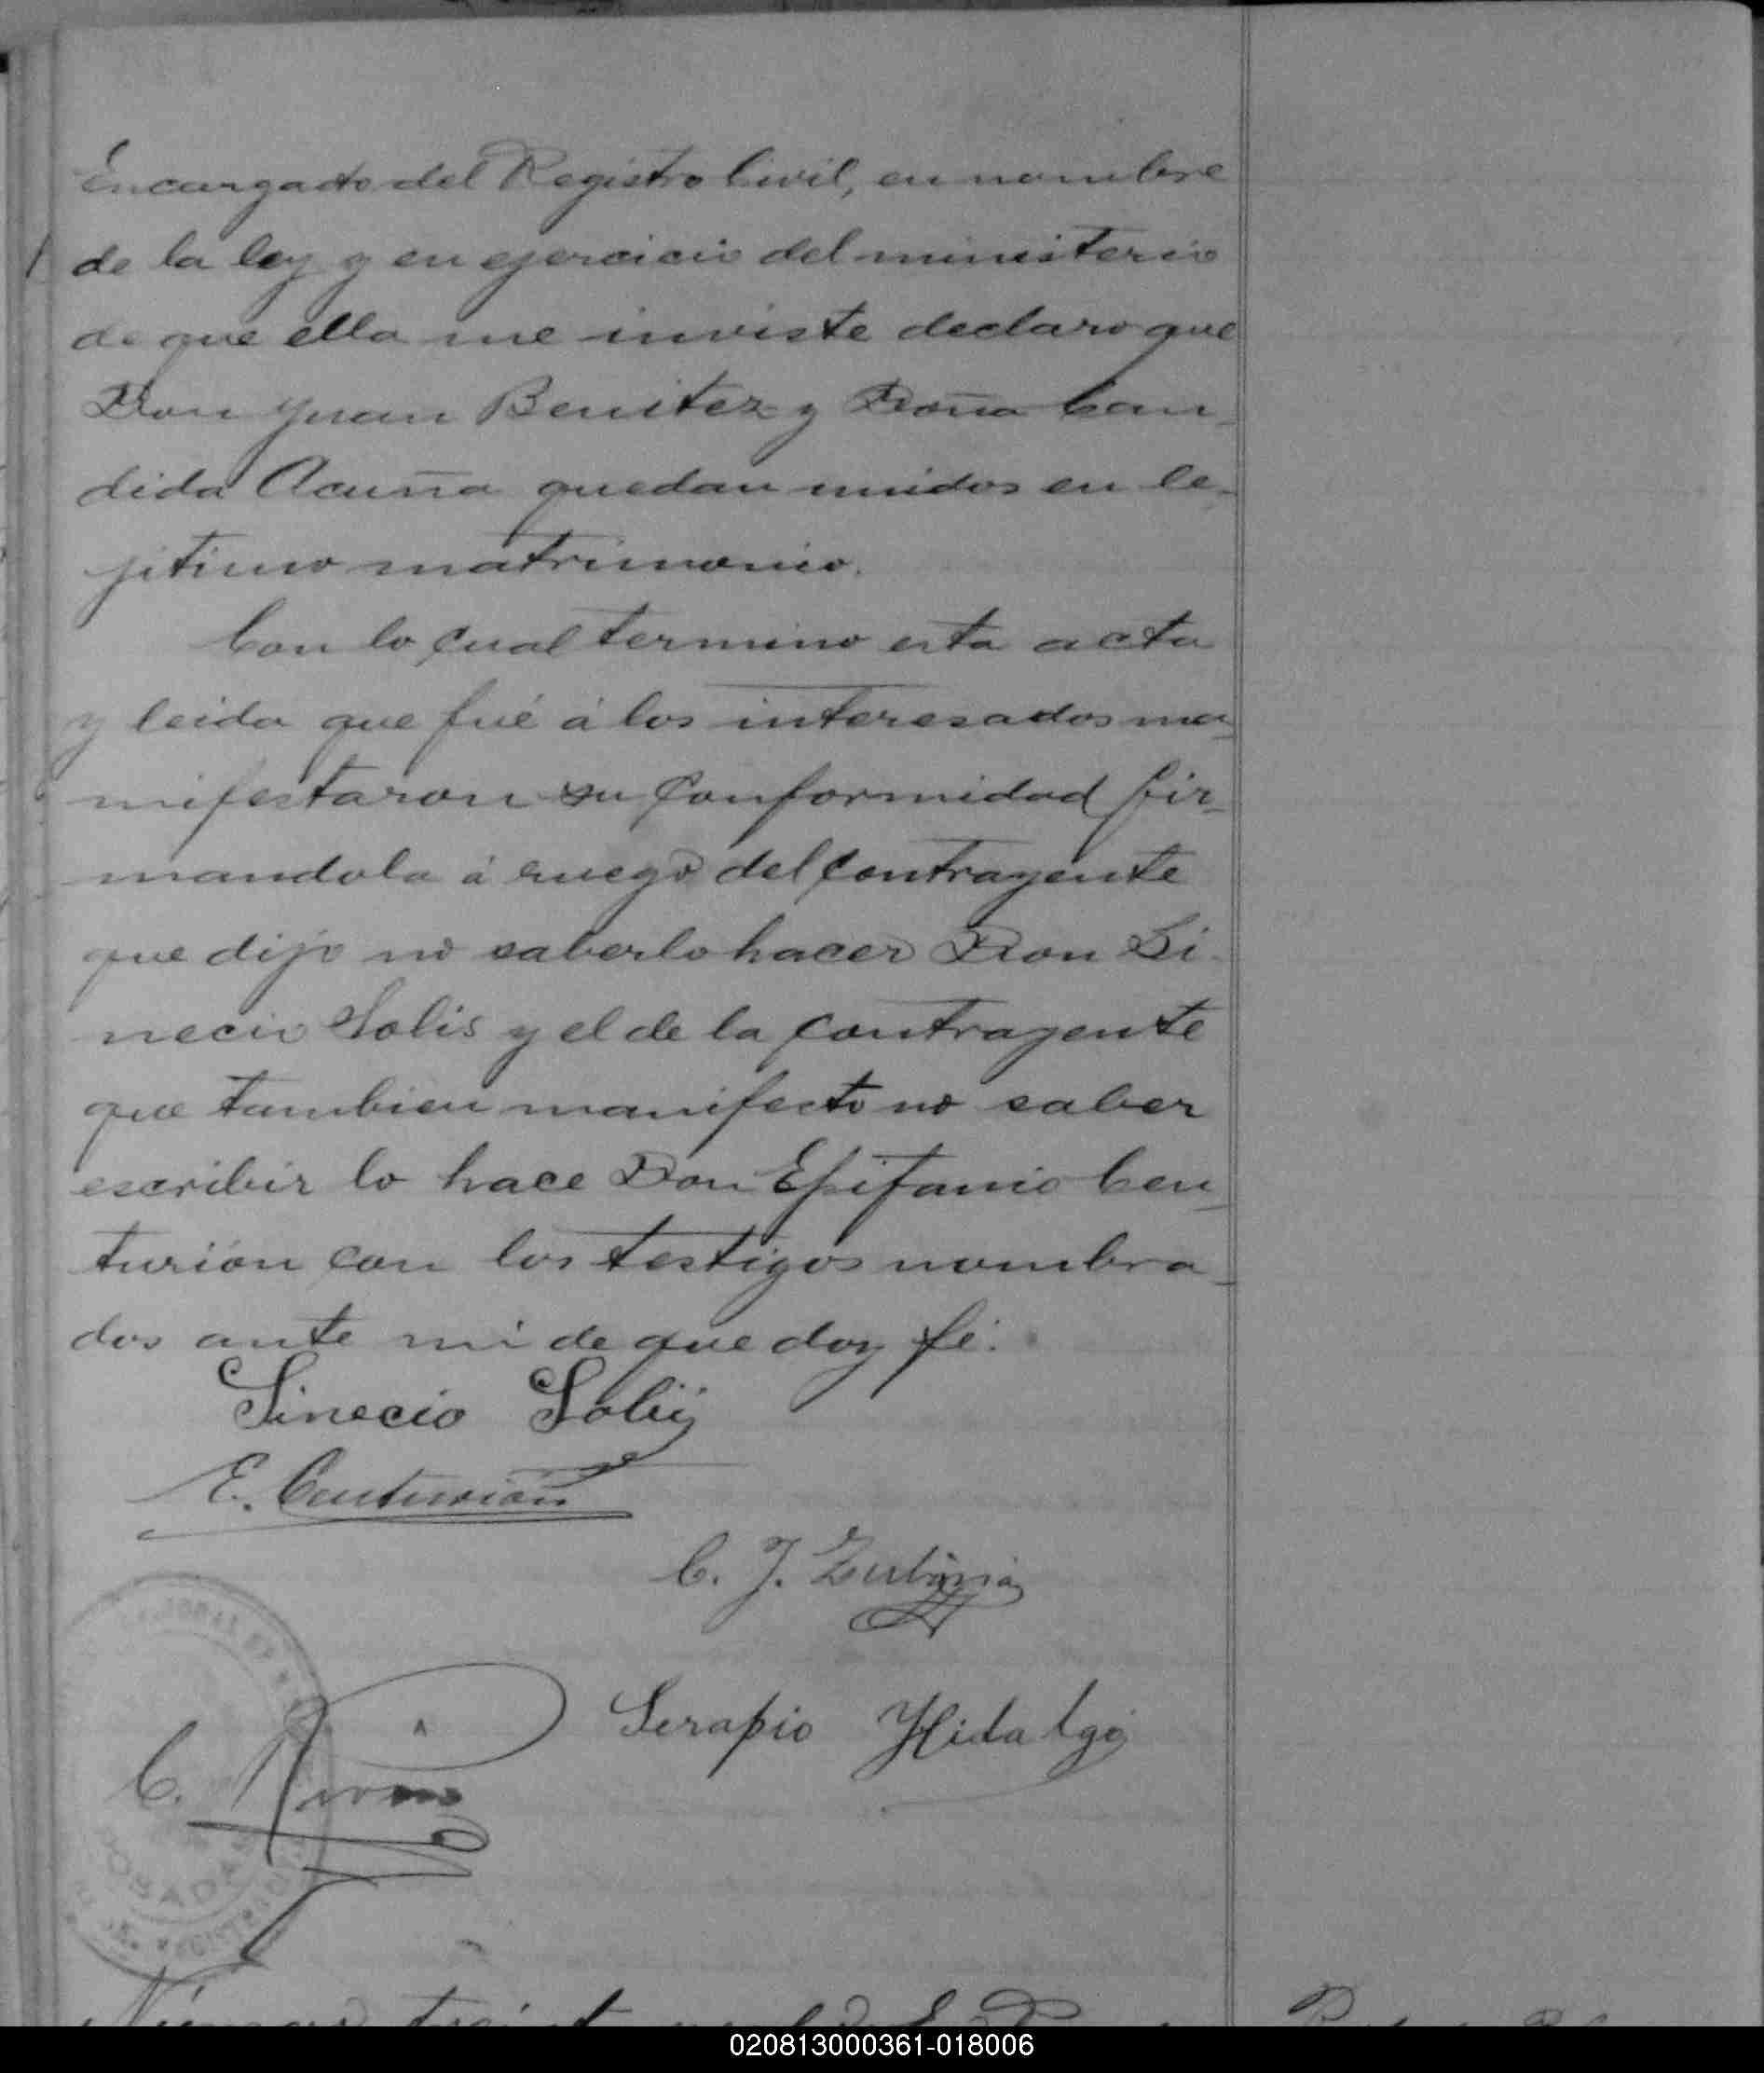 Encargado del Registro Civil, en nombre
de la ley y en ejercicio del ministerio
de que ella me inviste declaro que
Don Juan Benitez y Doña Can-
dida Acuña quedan unidos en le-
jitimo matrimonio.
Con lo cual termino esta acta
y leida que fué á los interesados ma-
nifestaron su conformidad fir-
mandola á ruego del contrayente
que dijo no saberlo hacer Don Si-
necio Solis y el de la contrayente
que tambien manifesto no saber
escribir lo hace Don Epifanio Cen-
turión con los testigos nombra-
dos ante mi de que doy fé.
Sinecio Solis
E. Centurión
C. J.
Serapio Hidalgo
C.
POSADAS
020813000361-018006